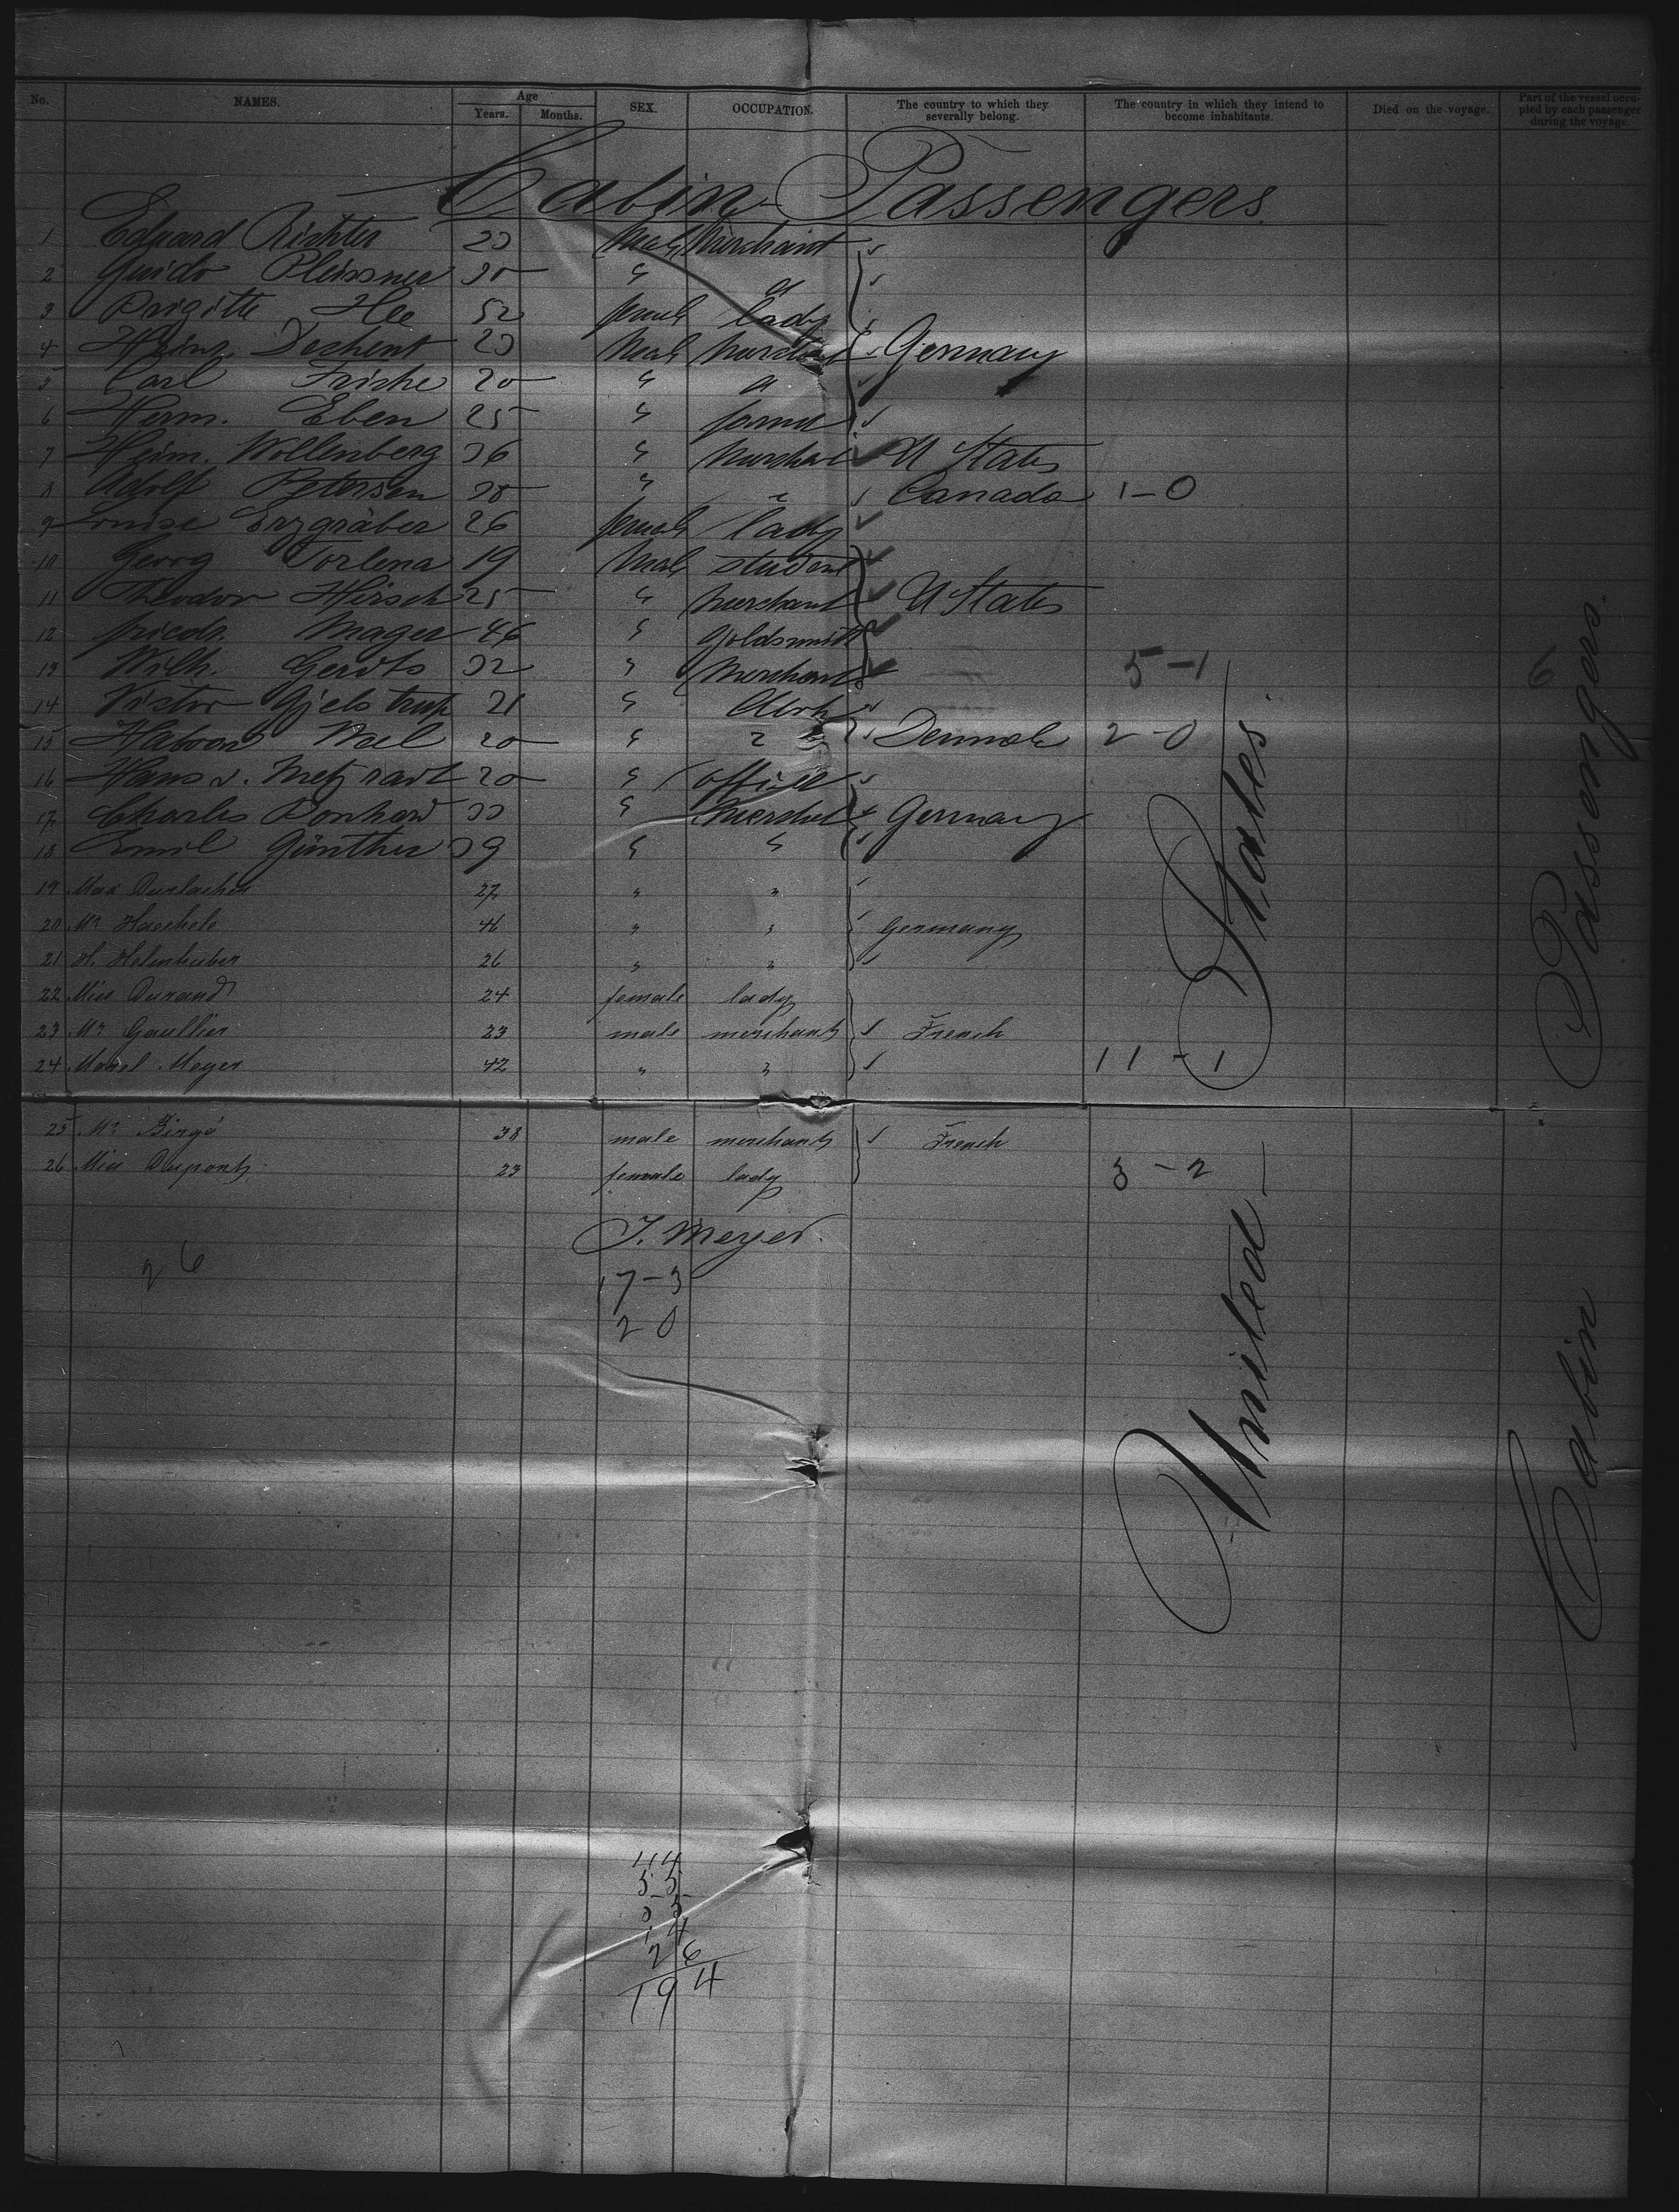 No. NAMES. Age Years. Months. SEX. OCCUPATION. The country to which they severally belong. The country in which they intend to become inhabitants. Died on the voyage. Part of the vessel occupied by each passenger during the voyage.
Cabin Passengers
1 Eduard Richter 23 Male Merchant
2 Guido Pleissner 30 " "
3 Brigitte Hee 52 female lady
4 Heinr. Dechent 23 Male Merchant Germany
5 Carl Frishe 20 " "
6 Herm. Eben 25 "
7 Heim. Wollenberg 36 " Merchant U States
8 Adolf Petersen 38 " " Canada 1-0
9 Louise Erzgräber 26 female lady
10 Georg 19 Male student
11 Theodor Hirsch 25 " Merchant U States
12 friedr. Mager 46 " Goldsmith
13 Wilh. Gerdts 32 " Merchant 5-1
14 Victor Gjelstrup 21 "
15 20 " " Denmark 2-0
16 Hans v. 20 " officer
17 Charles 33 " Merchant Germany
18 Emil Günther 39 " "
19 Max Durlacher 27 " "
20 Mr 46 " " Germany
21 H. Helmhuber 26 " "
22 Miss Durand 24 female lady
23 Mr Gaullier 23 male merchant French
24 Meyer 42 " " 11-1
25 Mr Birgé 38 male merchant French
26 Miss Dupont 23 female lady 3-2
J. Meyer.
26
17-3
2 0
United States
6
Cabin Passengers.
44
55
35
14
26
194